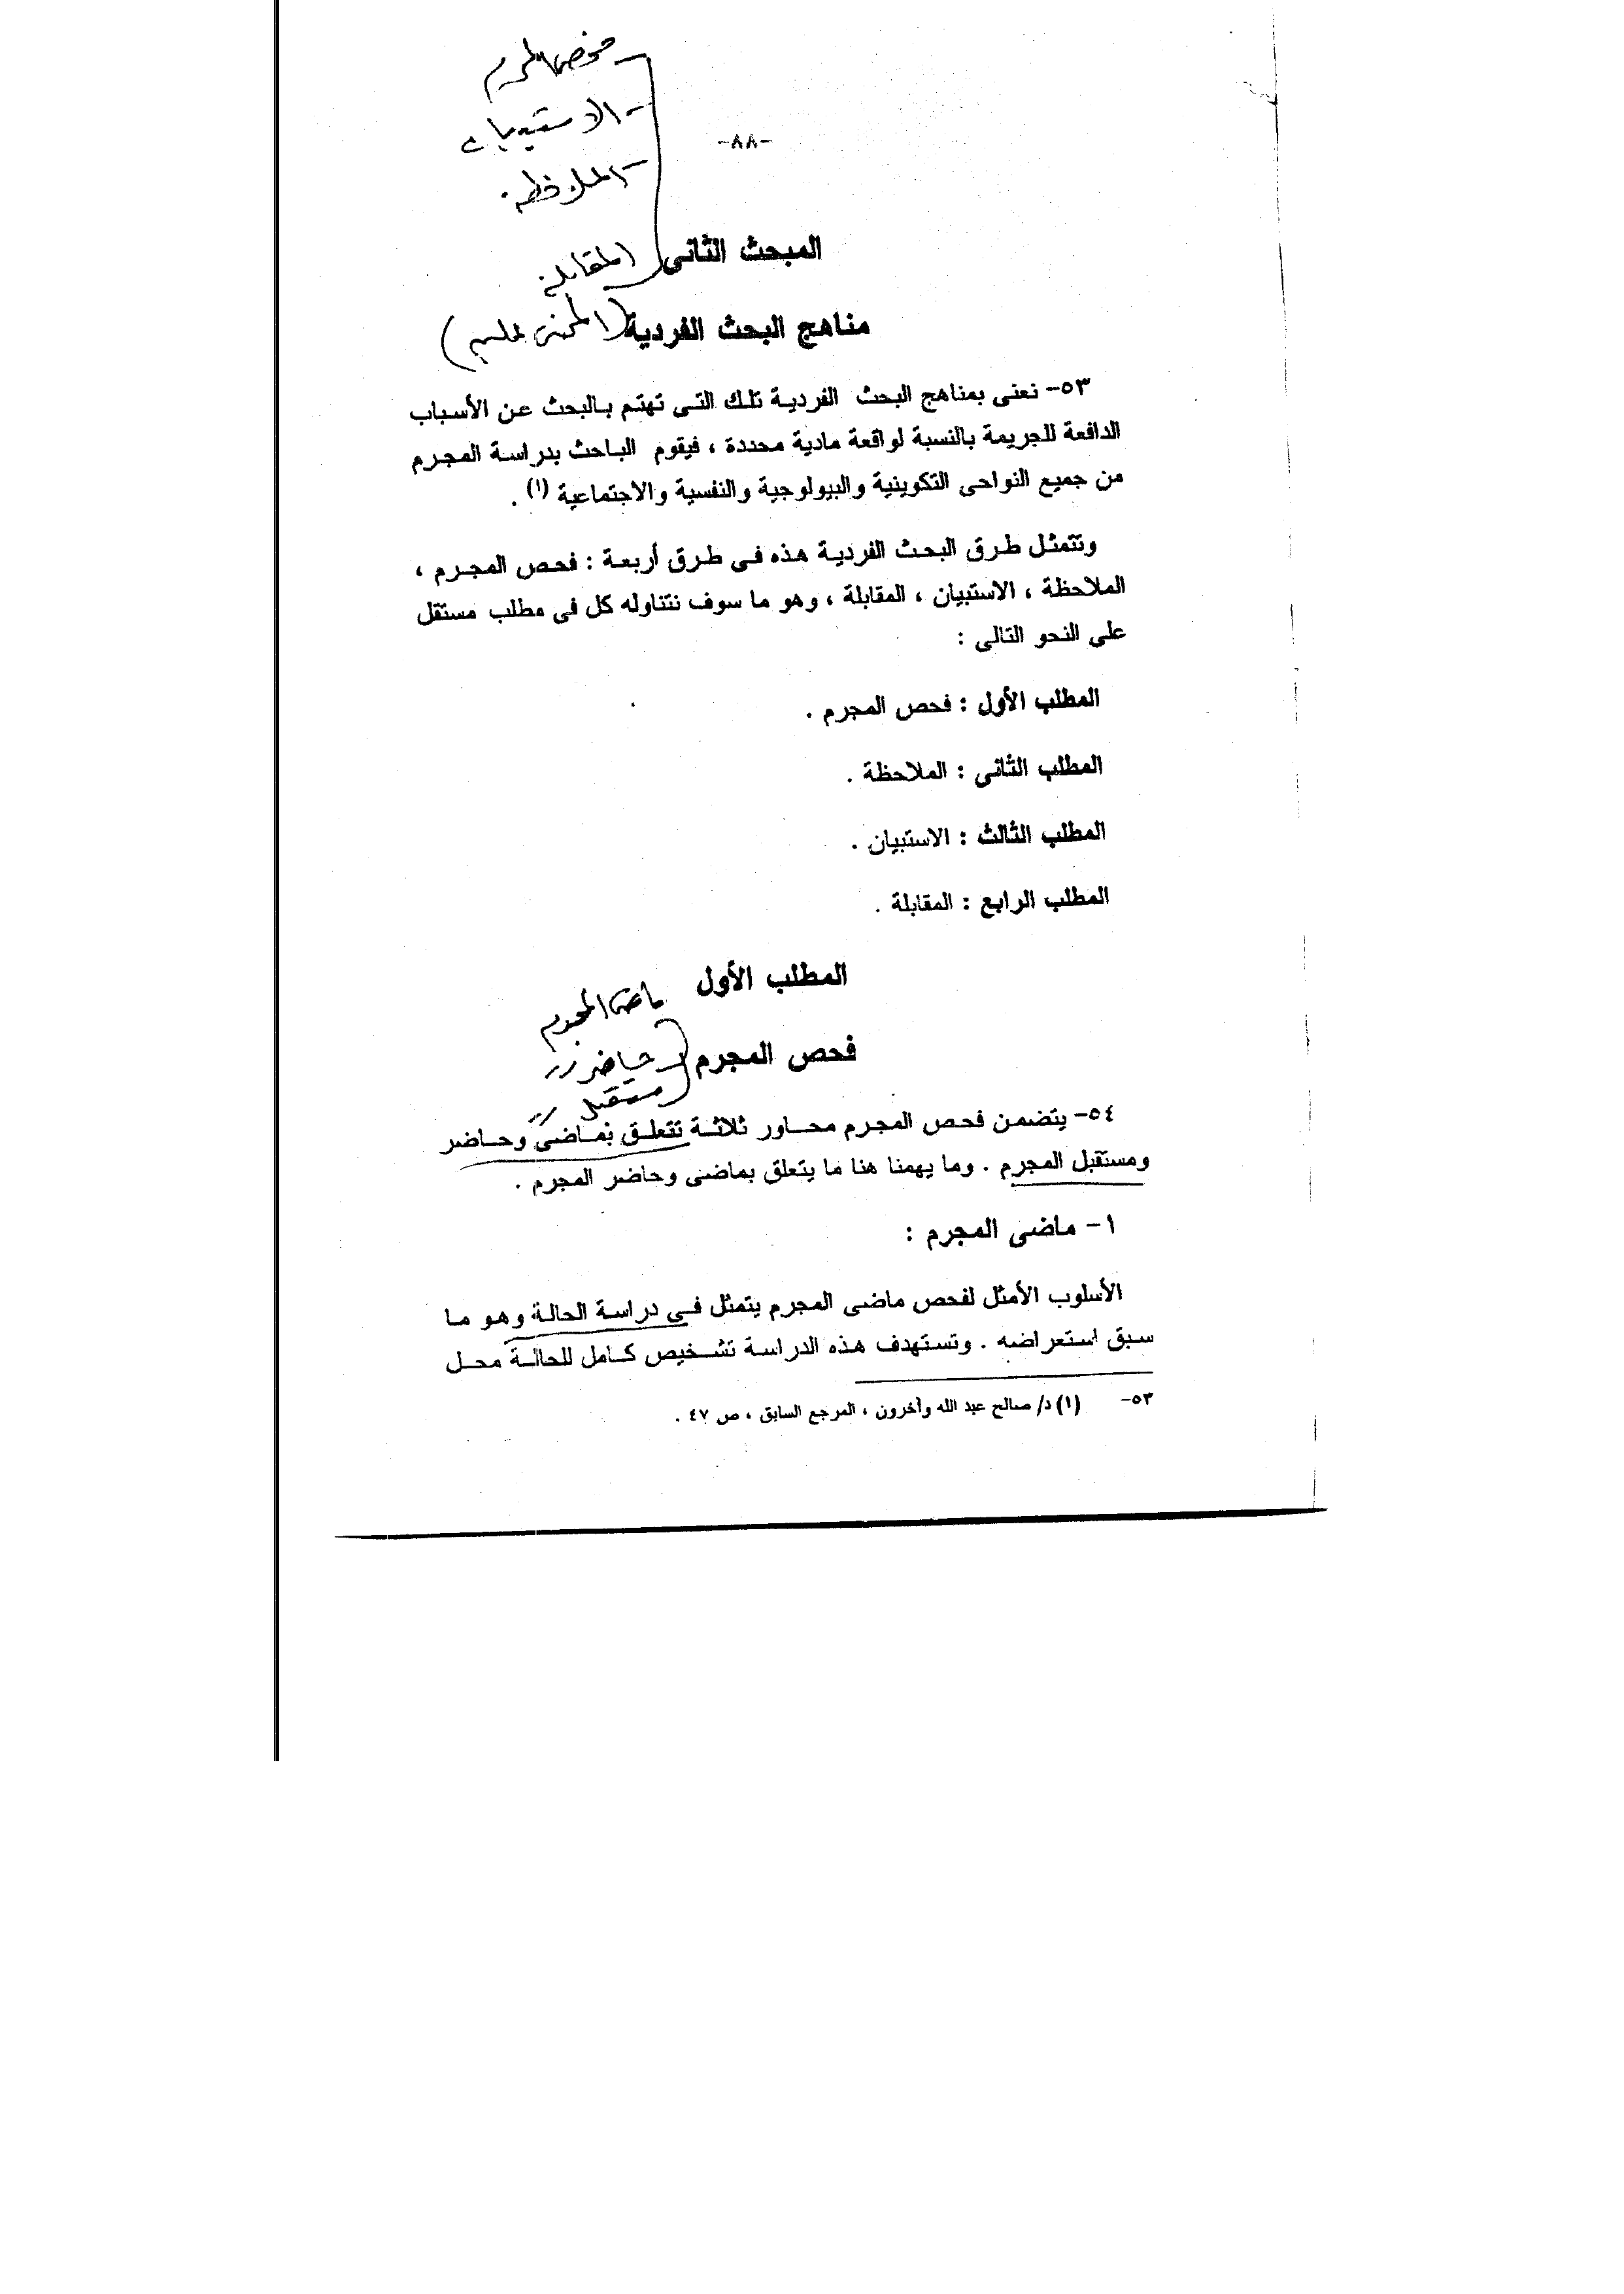 فحص المجرم
- الاستبيان
- الملاحظة
-٨٨-
المبحث الثانى
المقابلة
مناهج البحث الفردية
٥٣- نعنى بمناهج البحث الفردية تلك التى تهتم بالبحث عن الأسباب
الدافعة للجريمة بالنسبة لواقعة مادية محددة ، فيقوم الباحث بدراسة المجرم
من جميع النواحى التكوينية والبيولوجية والنفسية والاجتماعية (١) .
وتتمثل طرق البحث الفردية هذه فى طرق أربعة : فحص المجرم ،
الملاحظة ، الاستبيان ، المقابلة ، وهو ما سوف نتناوله كل فى مطلب مستقل
على النحو التالى :
المطلب الأول : فحص المجرم .
المطلب الثانى : الملاحظة .
المطلب الثالث : الاستبيان .
المطلب الرابع : المقابلة .
المطلب الأول
ماضى المجرم
فحص المجرم
حاضر //
مستقبل //
٥٤- يتضمن فحص المجرم محاور ثلاثة تتعلق بماضى وحاضر
ومستقبل المجرم . وما يهمنا هنا ما يتعلق بماضى وحاضر المجرم .
١- ماضى المجرم :
الأسلوب الأمثل لفحص ماضى المجرم يتمثل فى دراسة الحالة وهو ما
سبق استعراضه . وتستهدف هذه الدراسة تشخيص كامل للحالة محل
٥٣- (١) د/ صالح عبد الله وآخرون ، المرجع السابق ، ص ٤٧ .